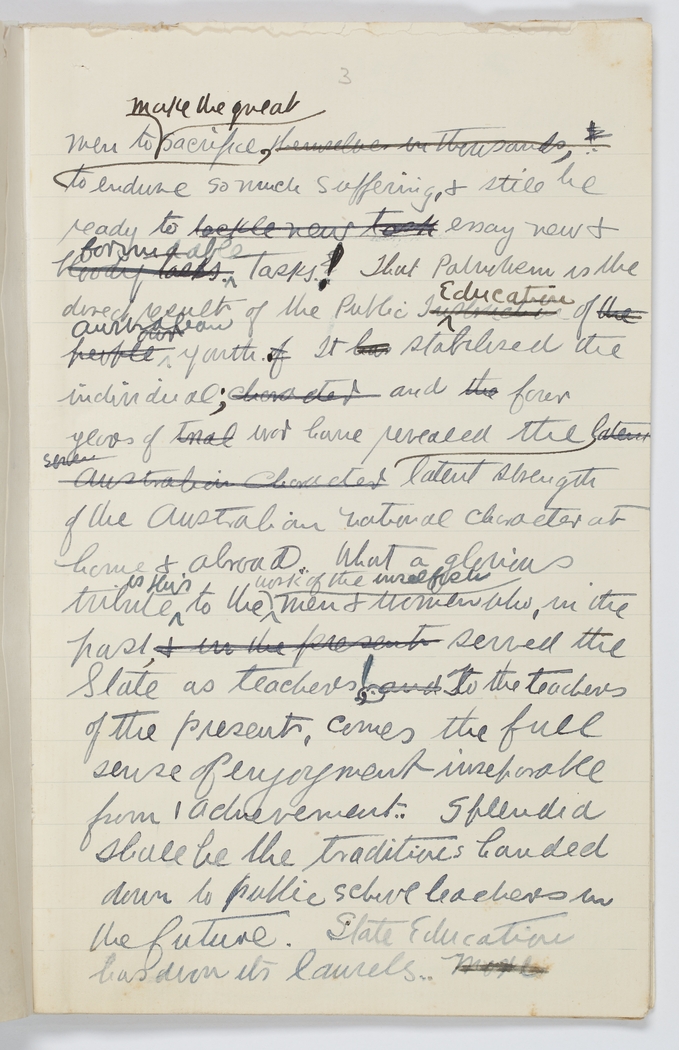 3
make the great
men to sacrifice, themselves in thousands, &
to endure so much suffering, & still be
ready to tackle new task essay new &
formidable
bloody tasks. tasks! That Patriotism is the
Education
direct result of the Public Instruction of the
Australian
our
people youth. It has stabilised the
individual; character and the four
years of trial war have revealed the latent
seven
Australian character latent strength
of the Australian national character at
home & abroad. What a glorious
is this work of the unselfish
tribute, to the men & women who, in the
past, & in the present served the
State as teachers! and To the teachers
of the present, comes the full
sense of enjoyment inseparable
from achievement.. Splendid
shall be the traditions handed
down to public school teachers in
the future. State Education
has won its laurels..